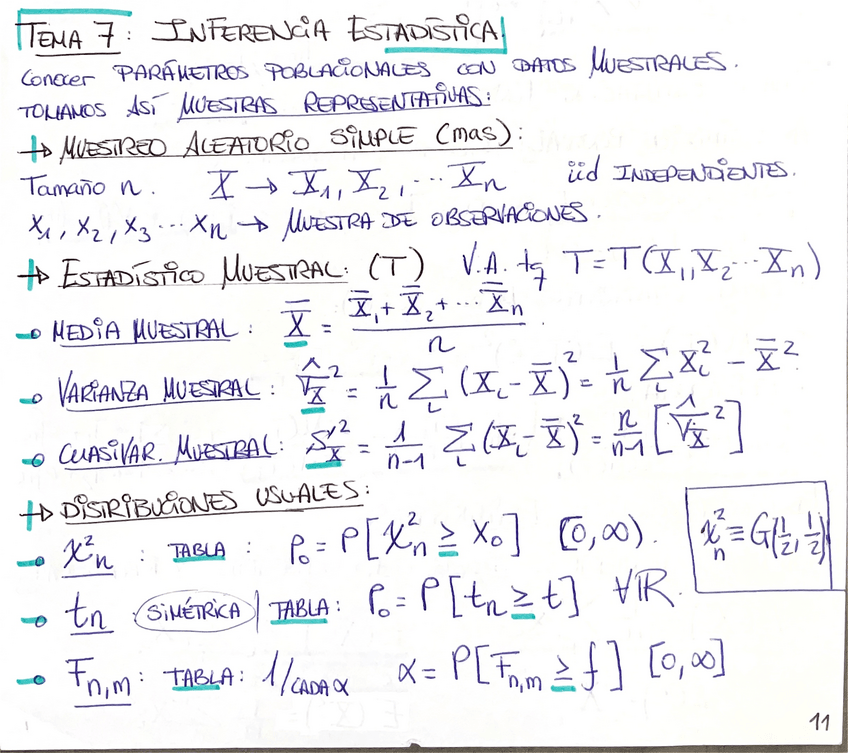 TEMA 7: INFERENCIA ESTADÍSTICA
Conocer PARÁMETROS POBLACIONALES CON DATOS MUESTRALES.
TOMAMOS ASÍ MUESTRAS REPRESENTATIVAS:
→ MUESTREO ALEATORIO SIMPLE (mas):
Tamaño n. X → X₁, X₂, ... Xₙ iid INDEPENDIENTES.
x₁, x₂, x₃ ... xₙ → MUESTRA DE OBSERVACIONES.
→ ESTADÍSTICO MUESTRAL: (T) V.A. tq T = T(X₁, X₂ ... Xₙ)
- MEDIA MUESTRAL: X̄ = (X̄₁ + X̄₂ + ... X̄ₙ) / n
- VARIANZA MUESTRAL: σ̂²ₓ = 1/n Σᵢ (Xᵢ - X̄)² = 1/n Σᵢ Xᵢ² - X̄²
- CUASIVAR. MUESTRAL: S²ₓ = 1/(n-1) Σᵢ (Xᵢ - X̄)² = n/(n-1) [σ̂²ₓ]
→ DISTRIBUCIONES USUALES:
- χ²ₙ : TABLA : P₀ = P[χ²ₙ ≥ X₀] [0, ∞). χ²ₙ ≡ G(1/2, 1/2)
- tₙ SIMÉTRICA | TABLA: P₀ = P[tₙ ≥ t] ∀ℝ.
- Fₙ,ₘ: TABLA: 1/CADA α α = P[Fₙ,ₘ ≥ f] [0, ∞]
11